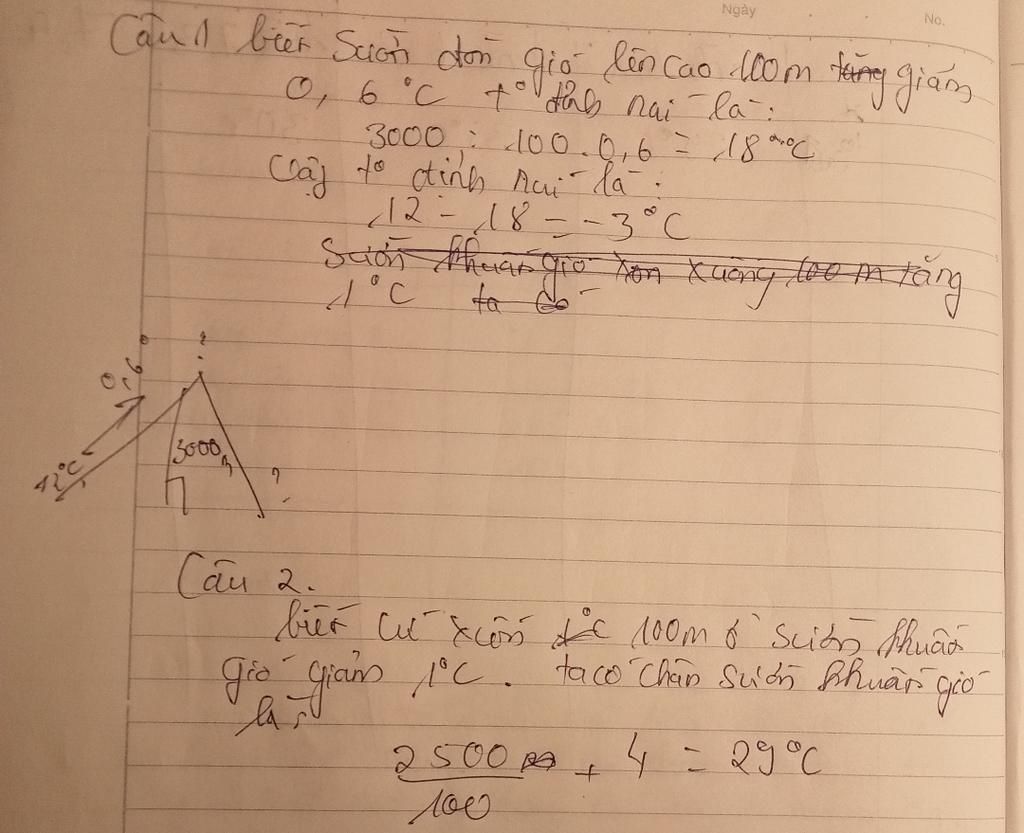 Ngày
No.
Câu 1 biết Sườn đón gió lên cao 100m tăng giảm
0,6 °C t° đỉnh núi là:
3000 : 100.0,6 = 18 °C
Vậy t° đỉnh núi là:
12 - 18 = -3°C
Sườn khuất gió xuống 100m tăng
1°C ta có
?
0,6°
3000m
12°C
?
Câu 2.
biết cứ xuốn 1°C 100m ở sườn khuất
gió giảm 1°C. ta có chân sườn khuất gió
là:
2500m + 4 = 29°C
100